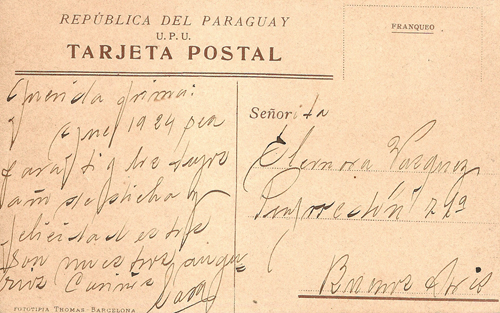 REPÚBLICA DEL PARAGUAY
U.P.U.
TARJETA POSTAL
FRANQUEO
Querida prima:
Que 1924 sea
para ti y los tuyos
año de dicha y
felicidad estos
son nuestros augu-
rios Cariños
Señorita
Eleonora Vazquez
Buenos Aires
FOTOTIPIA THOMAS-BARCELONA